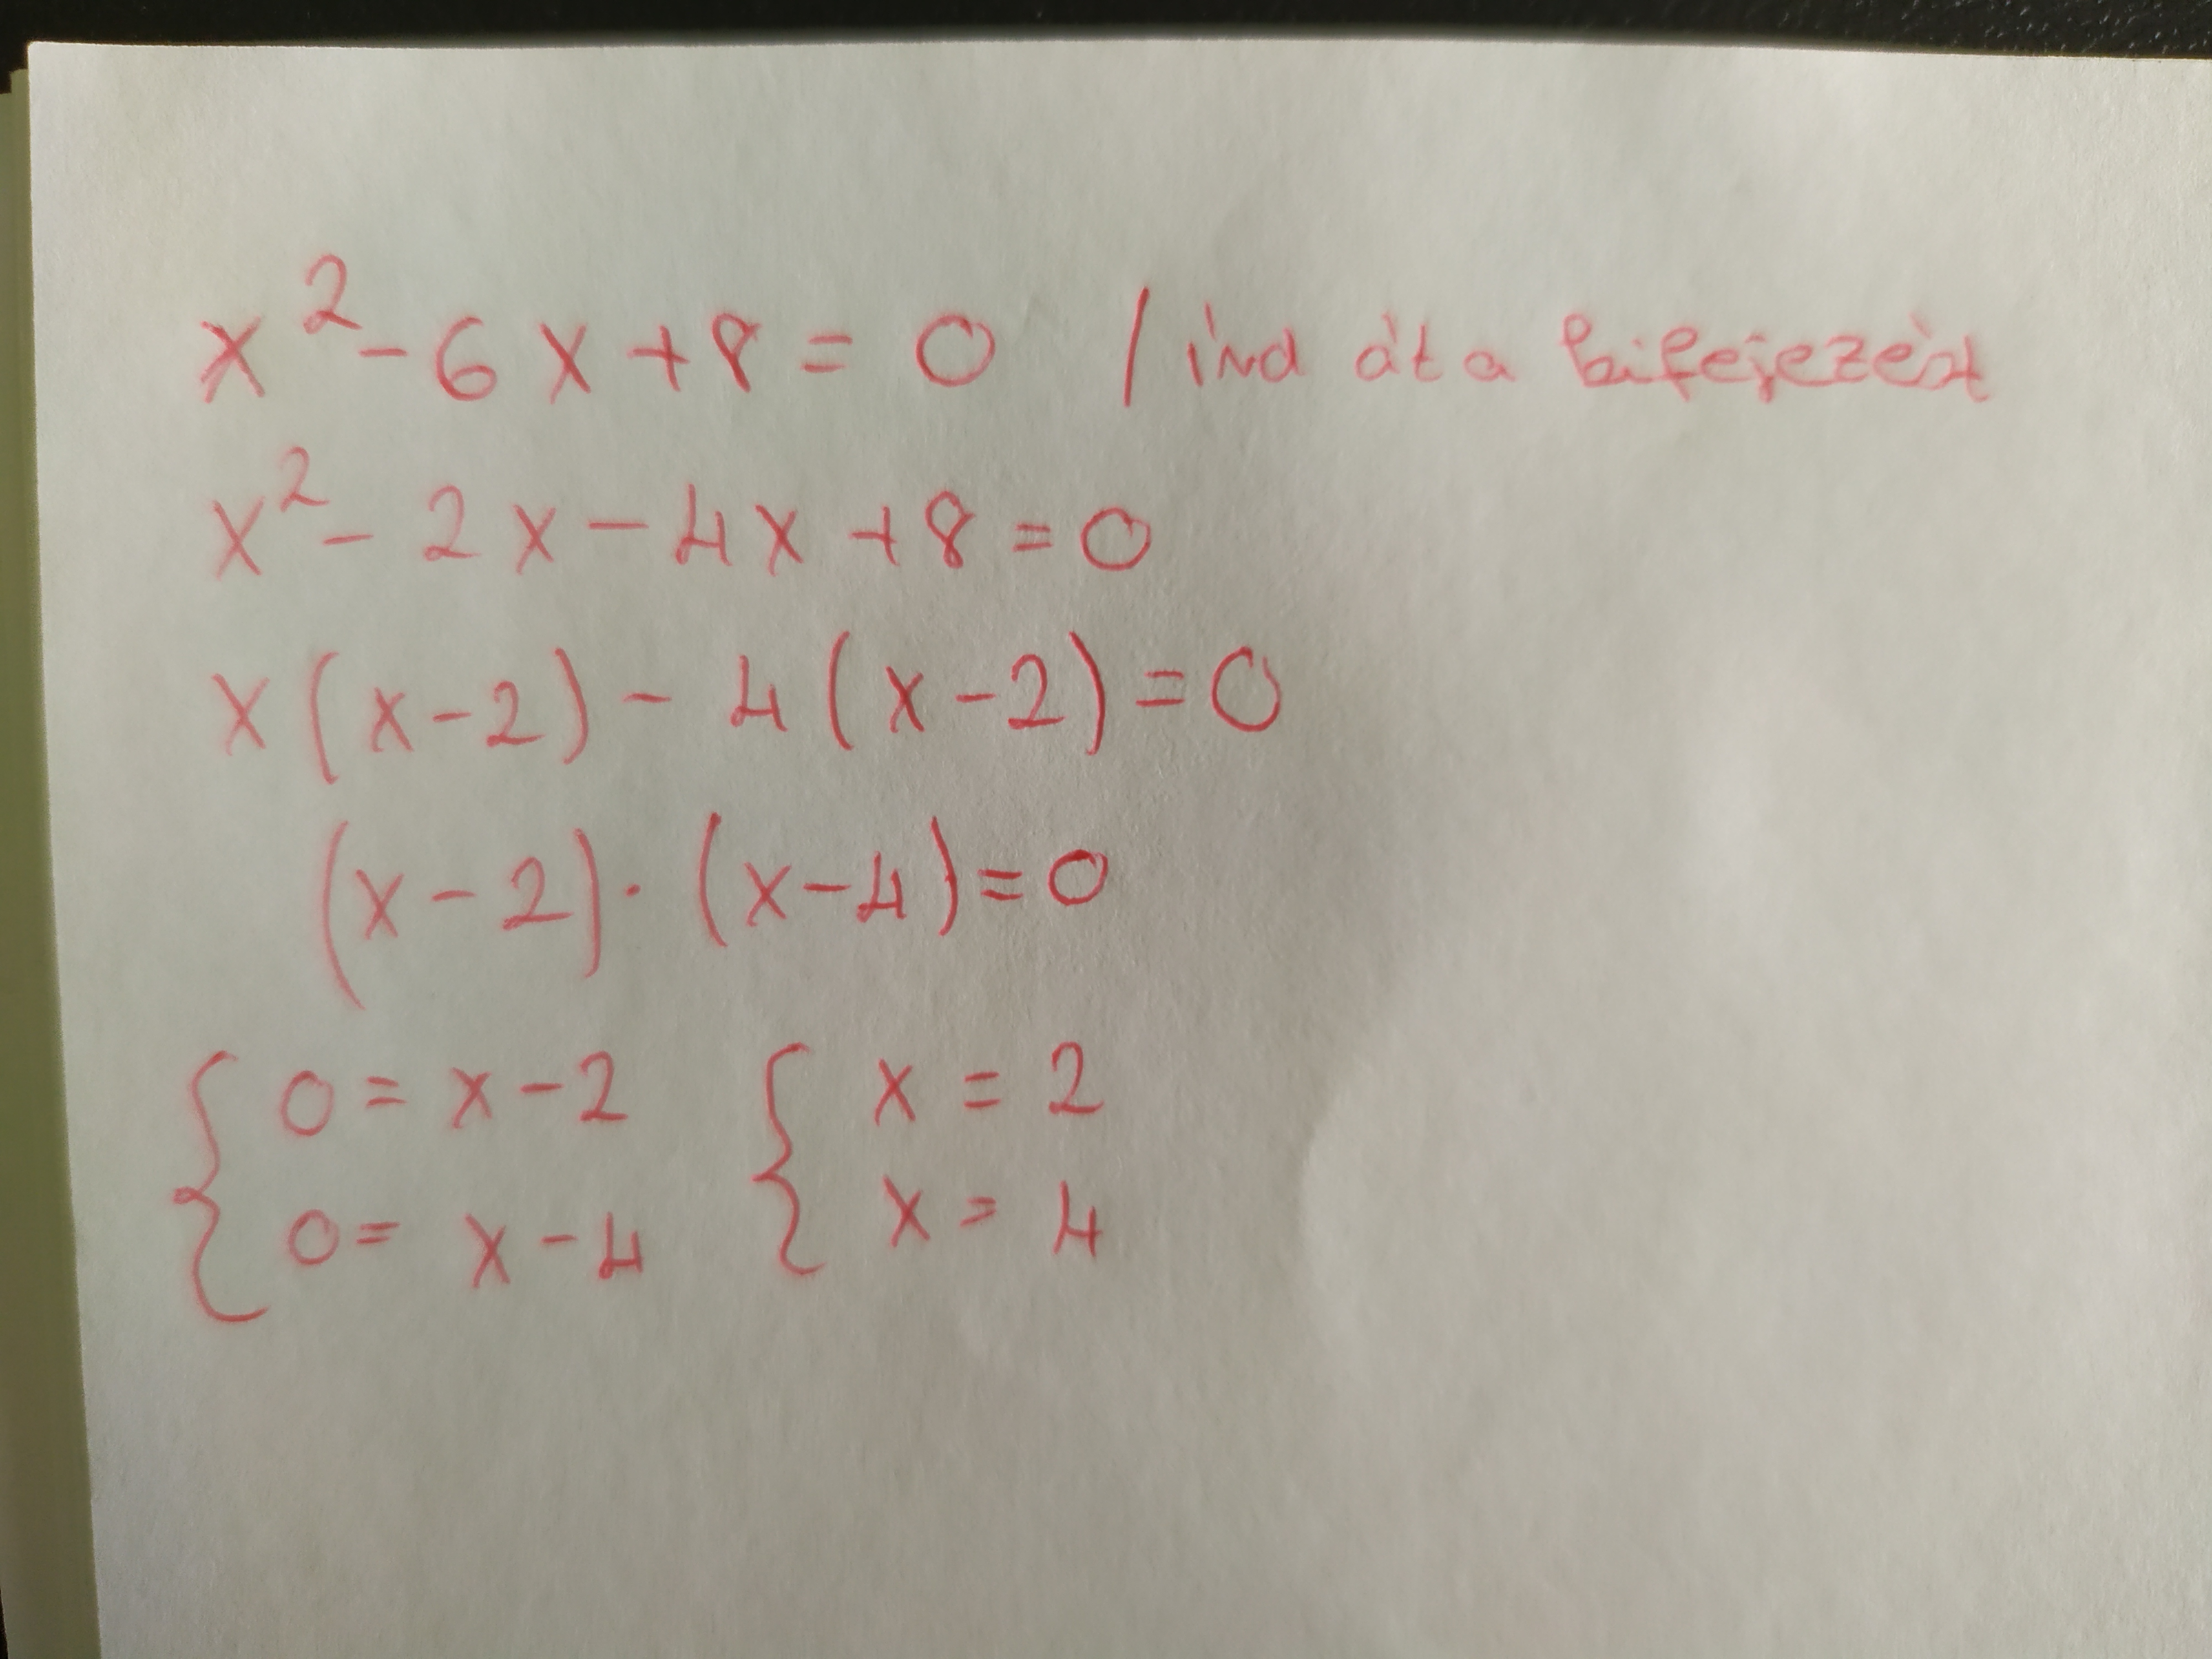 x² - 6x + 8 = 0 / írd át a kifejezést
x² - 2x - 4x + 8 = 0
x(x - 2) - 4(x - 2) = 0
(x - 2) · (x - 4) = 0
{ 0 = x - 2 { x = 2
{ 0 = x - 4 { x = 4